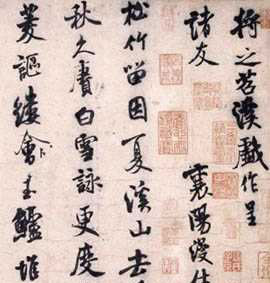 將之苕溪戲作呈
諸友
襄陽漫仕
松竹留因夏溪山去
秋久賡白雪詠更度
菱謳縷會玉鱸堆